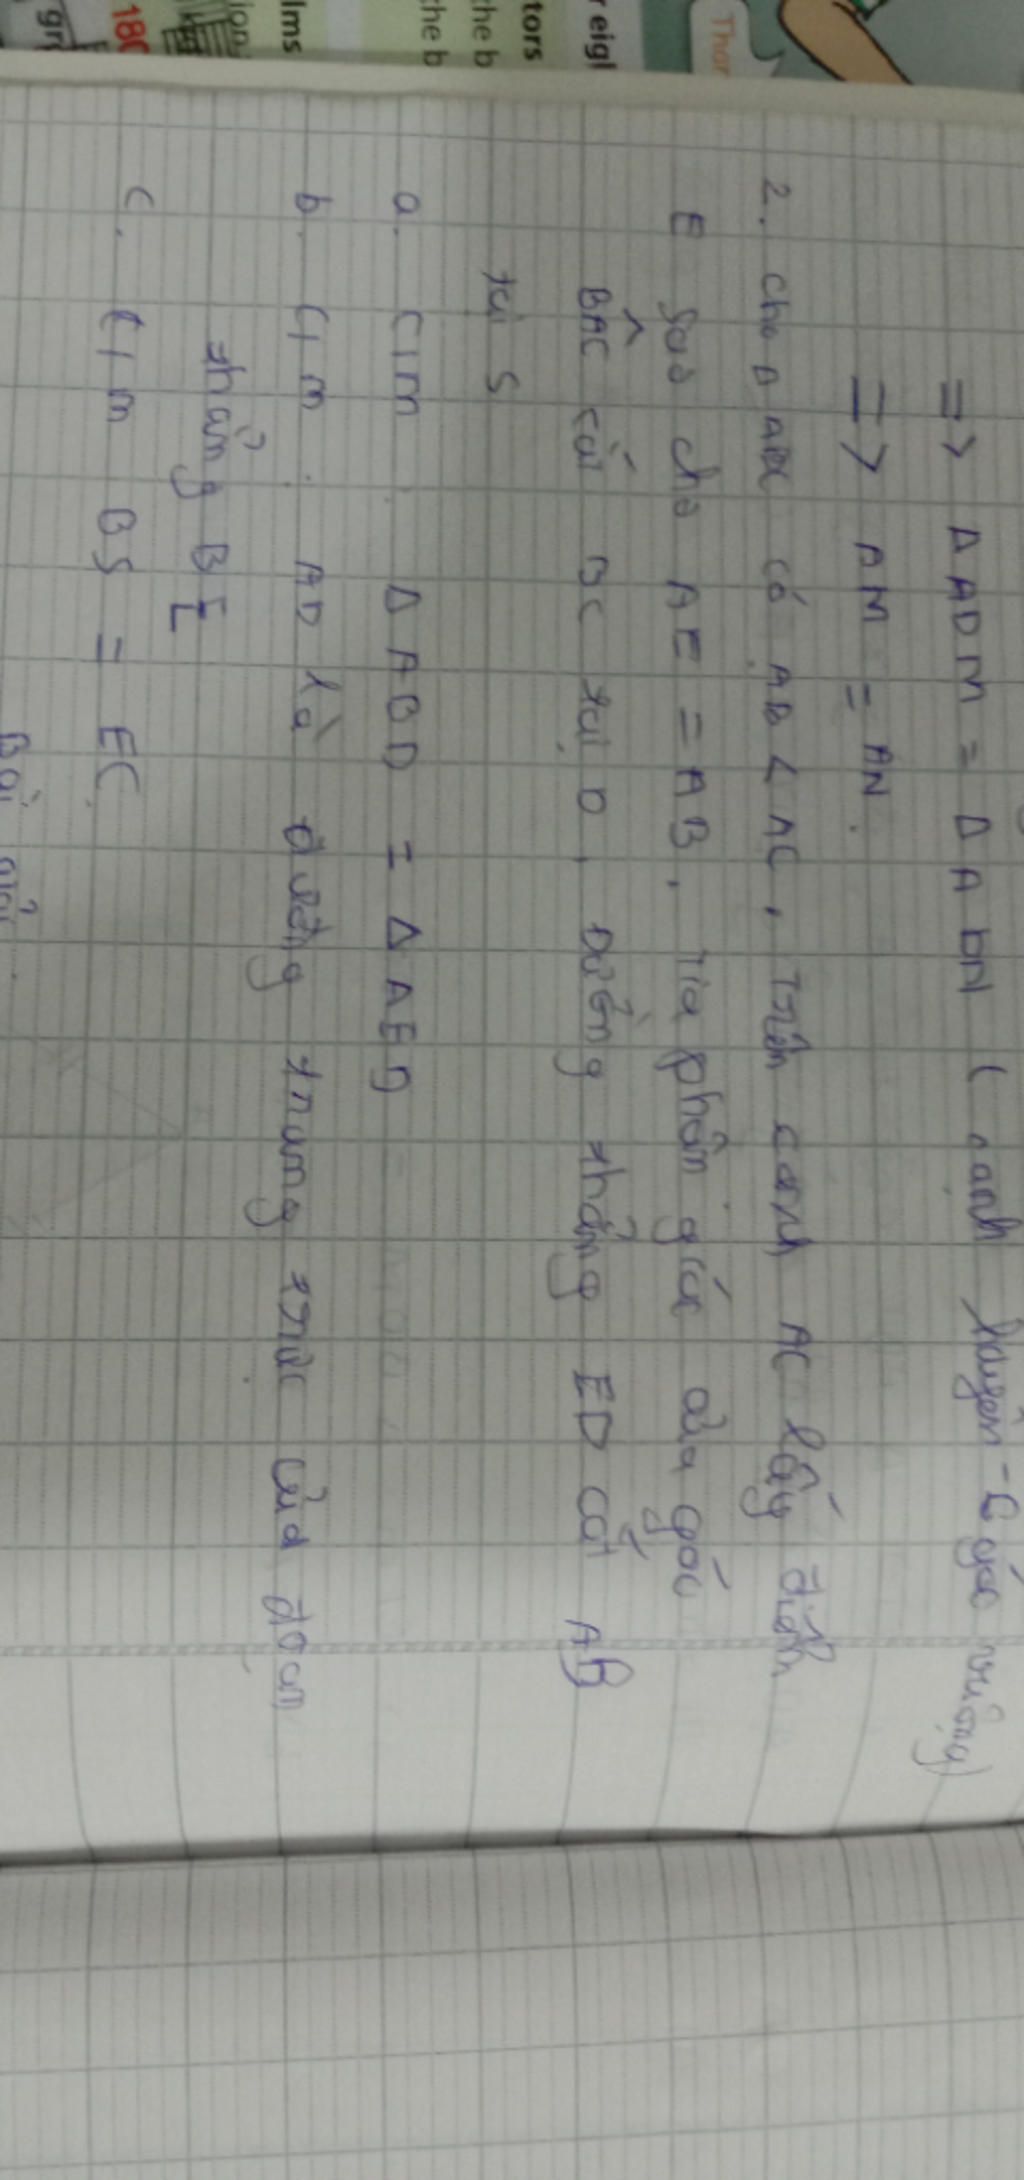 Thor
r eigl
tors
the b
the b
lms
ion
180
gr
=> Δ ADM = Δ ADN (cạnh huyền - góc vuông)
=> AM = AN.
2. Cho Δ ABC có AB < AC, Trên cạnh AC lấy điểm
E sao cho AE = AB, Tia phân giác của góc
BAC cắt BC tại D, Đường thẳng ED cắt AB
tại S
a. C/m : Δ ABD = Δ AED
b. C/m : AD là đường trung trực của đoạn
thẳng BE
c. C/m BS = EC
Bài giải